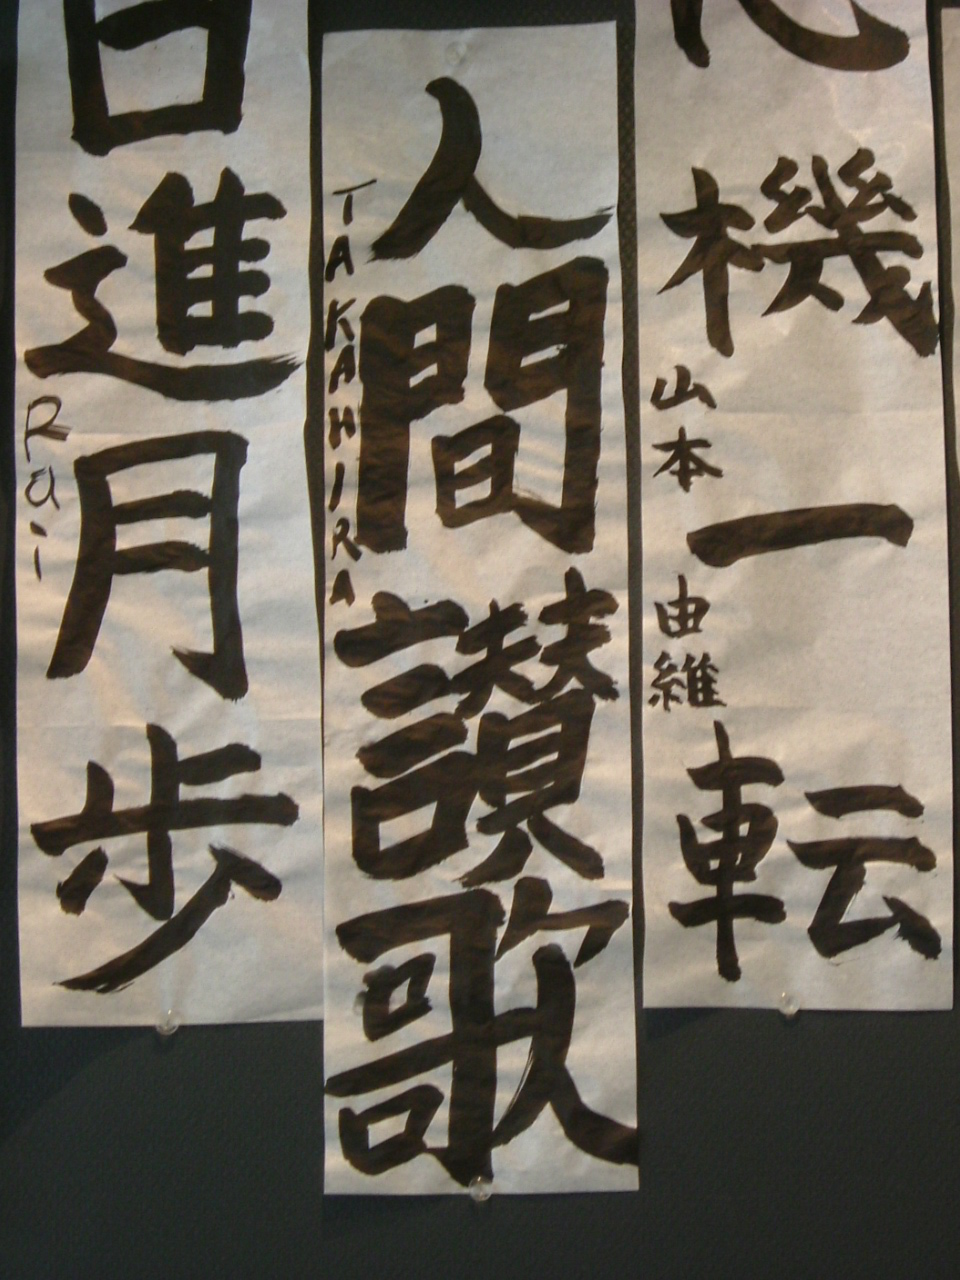 心機一転
山本由維
人間讃歌
TAKAHIRA
日進月歩
Rai